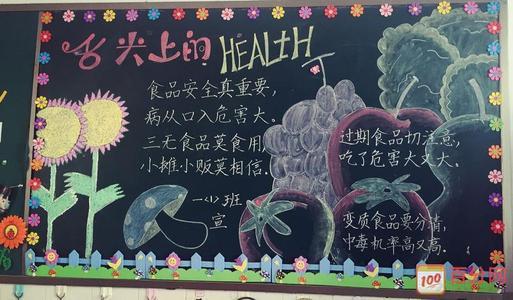 舌尖上的HEALTH
食品安全真重要，
病从口入危害大。
三无食品莫食用，
小摊小贩莫相信。
一(1)班
宣
过期食品切注意，
吃了危害大又大。
变质食品要分清，
中毒机率高又高。
100
百分网